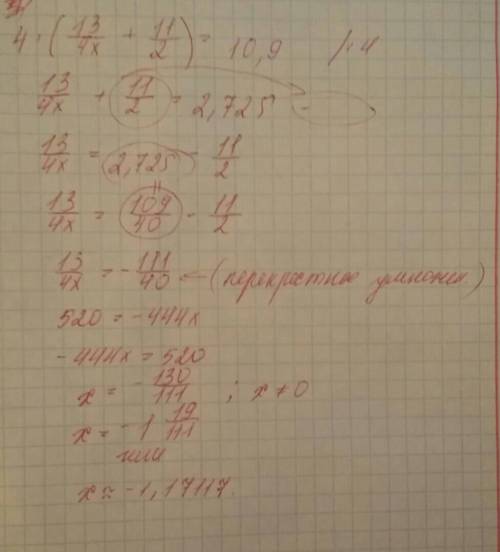 4 · (13/4x + 11/2) = 10,9 /:4
13/4x + 11/2 = 2,725 -
13/4x = 2,725 - 11/2
13/4x = 109/40 - 11/2
13/4x = - 111/40 ← (перекрестное умножен.)
520 = -444x
-444x = 520
x = - 130/111 ; x ≠ 0
x = -1 19/111
или
x ≈ -1,17117.